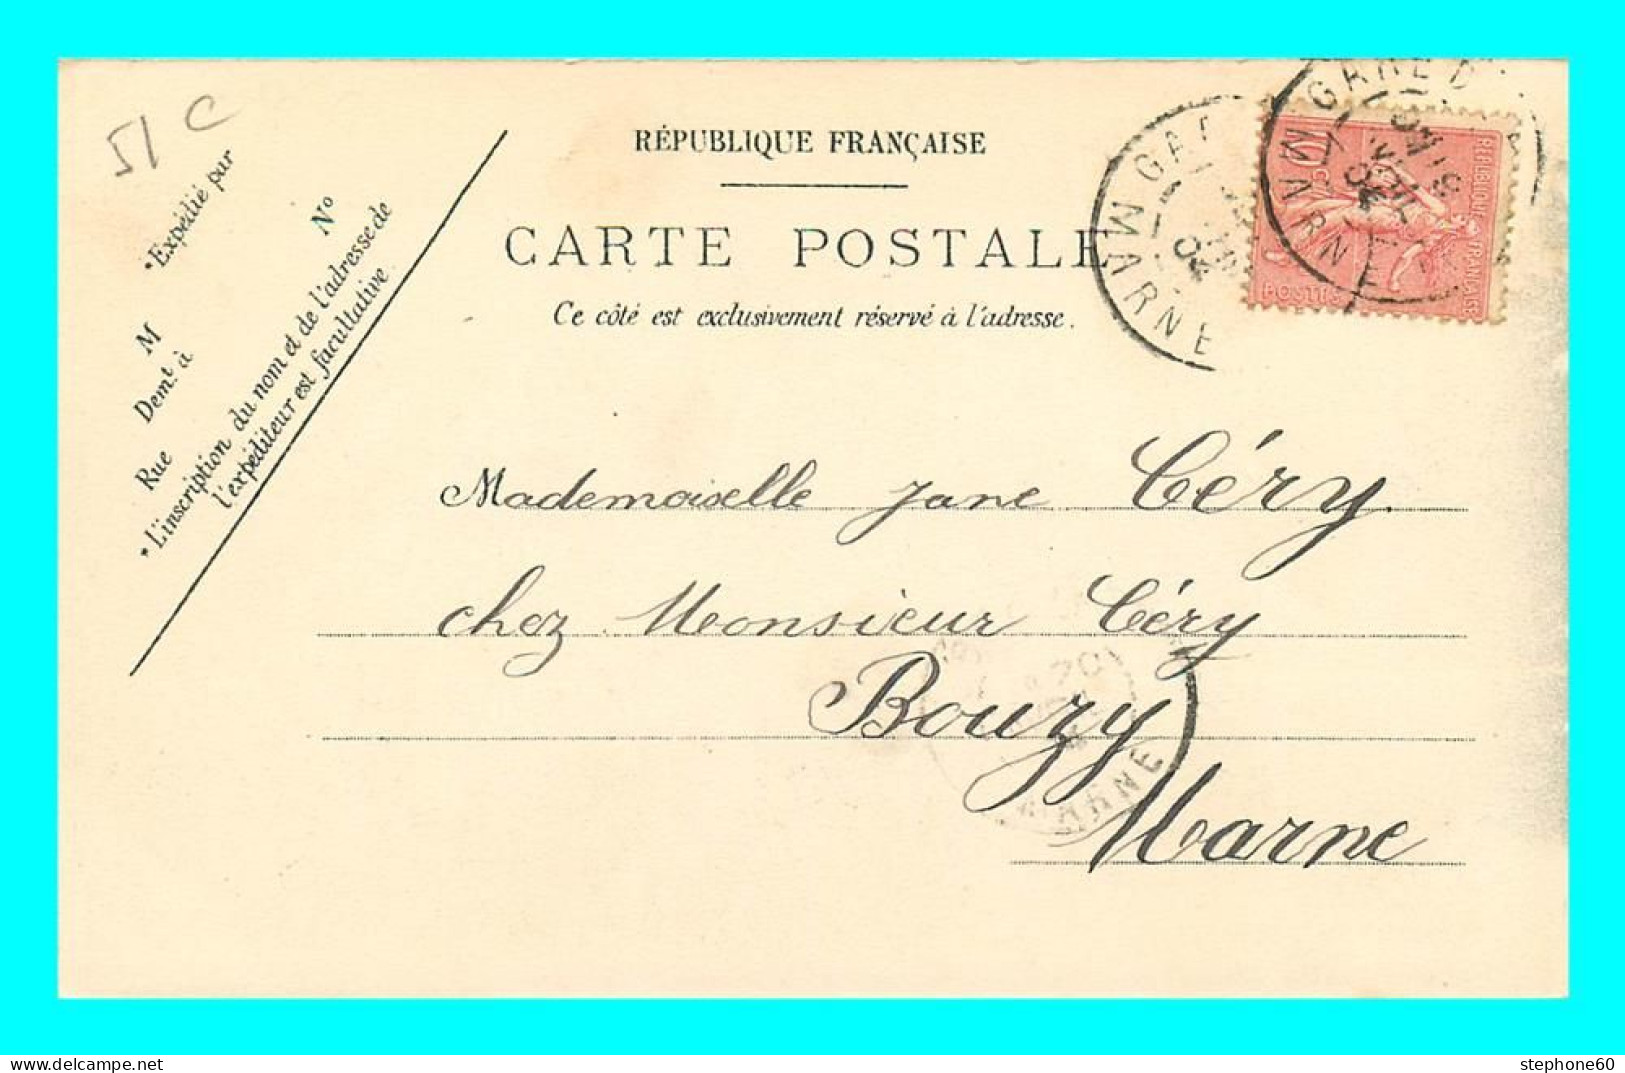 51 C
RÉPUBLIQUE FRANÇAISE
CARTE POSTALE
Ce côté est exclusivement réservé à l'adresse.
*Expédié par
M
Nº
Demt. à
Rue
*L'inscription du nom et de l'adresse de
l'expéditeur est facultative
GARE D
MARNE
04
GARE
MARNE
04
10 c
REPUBLIQUE FRANÇAISE
POSTES
Mademoiselle Jane Céry
chez Monsieur Céry
Bouzy
Marne
MARNE
stephone60